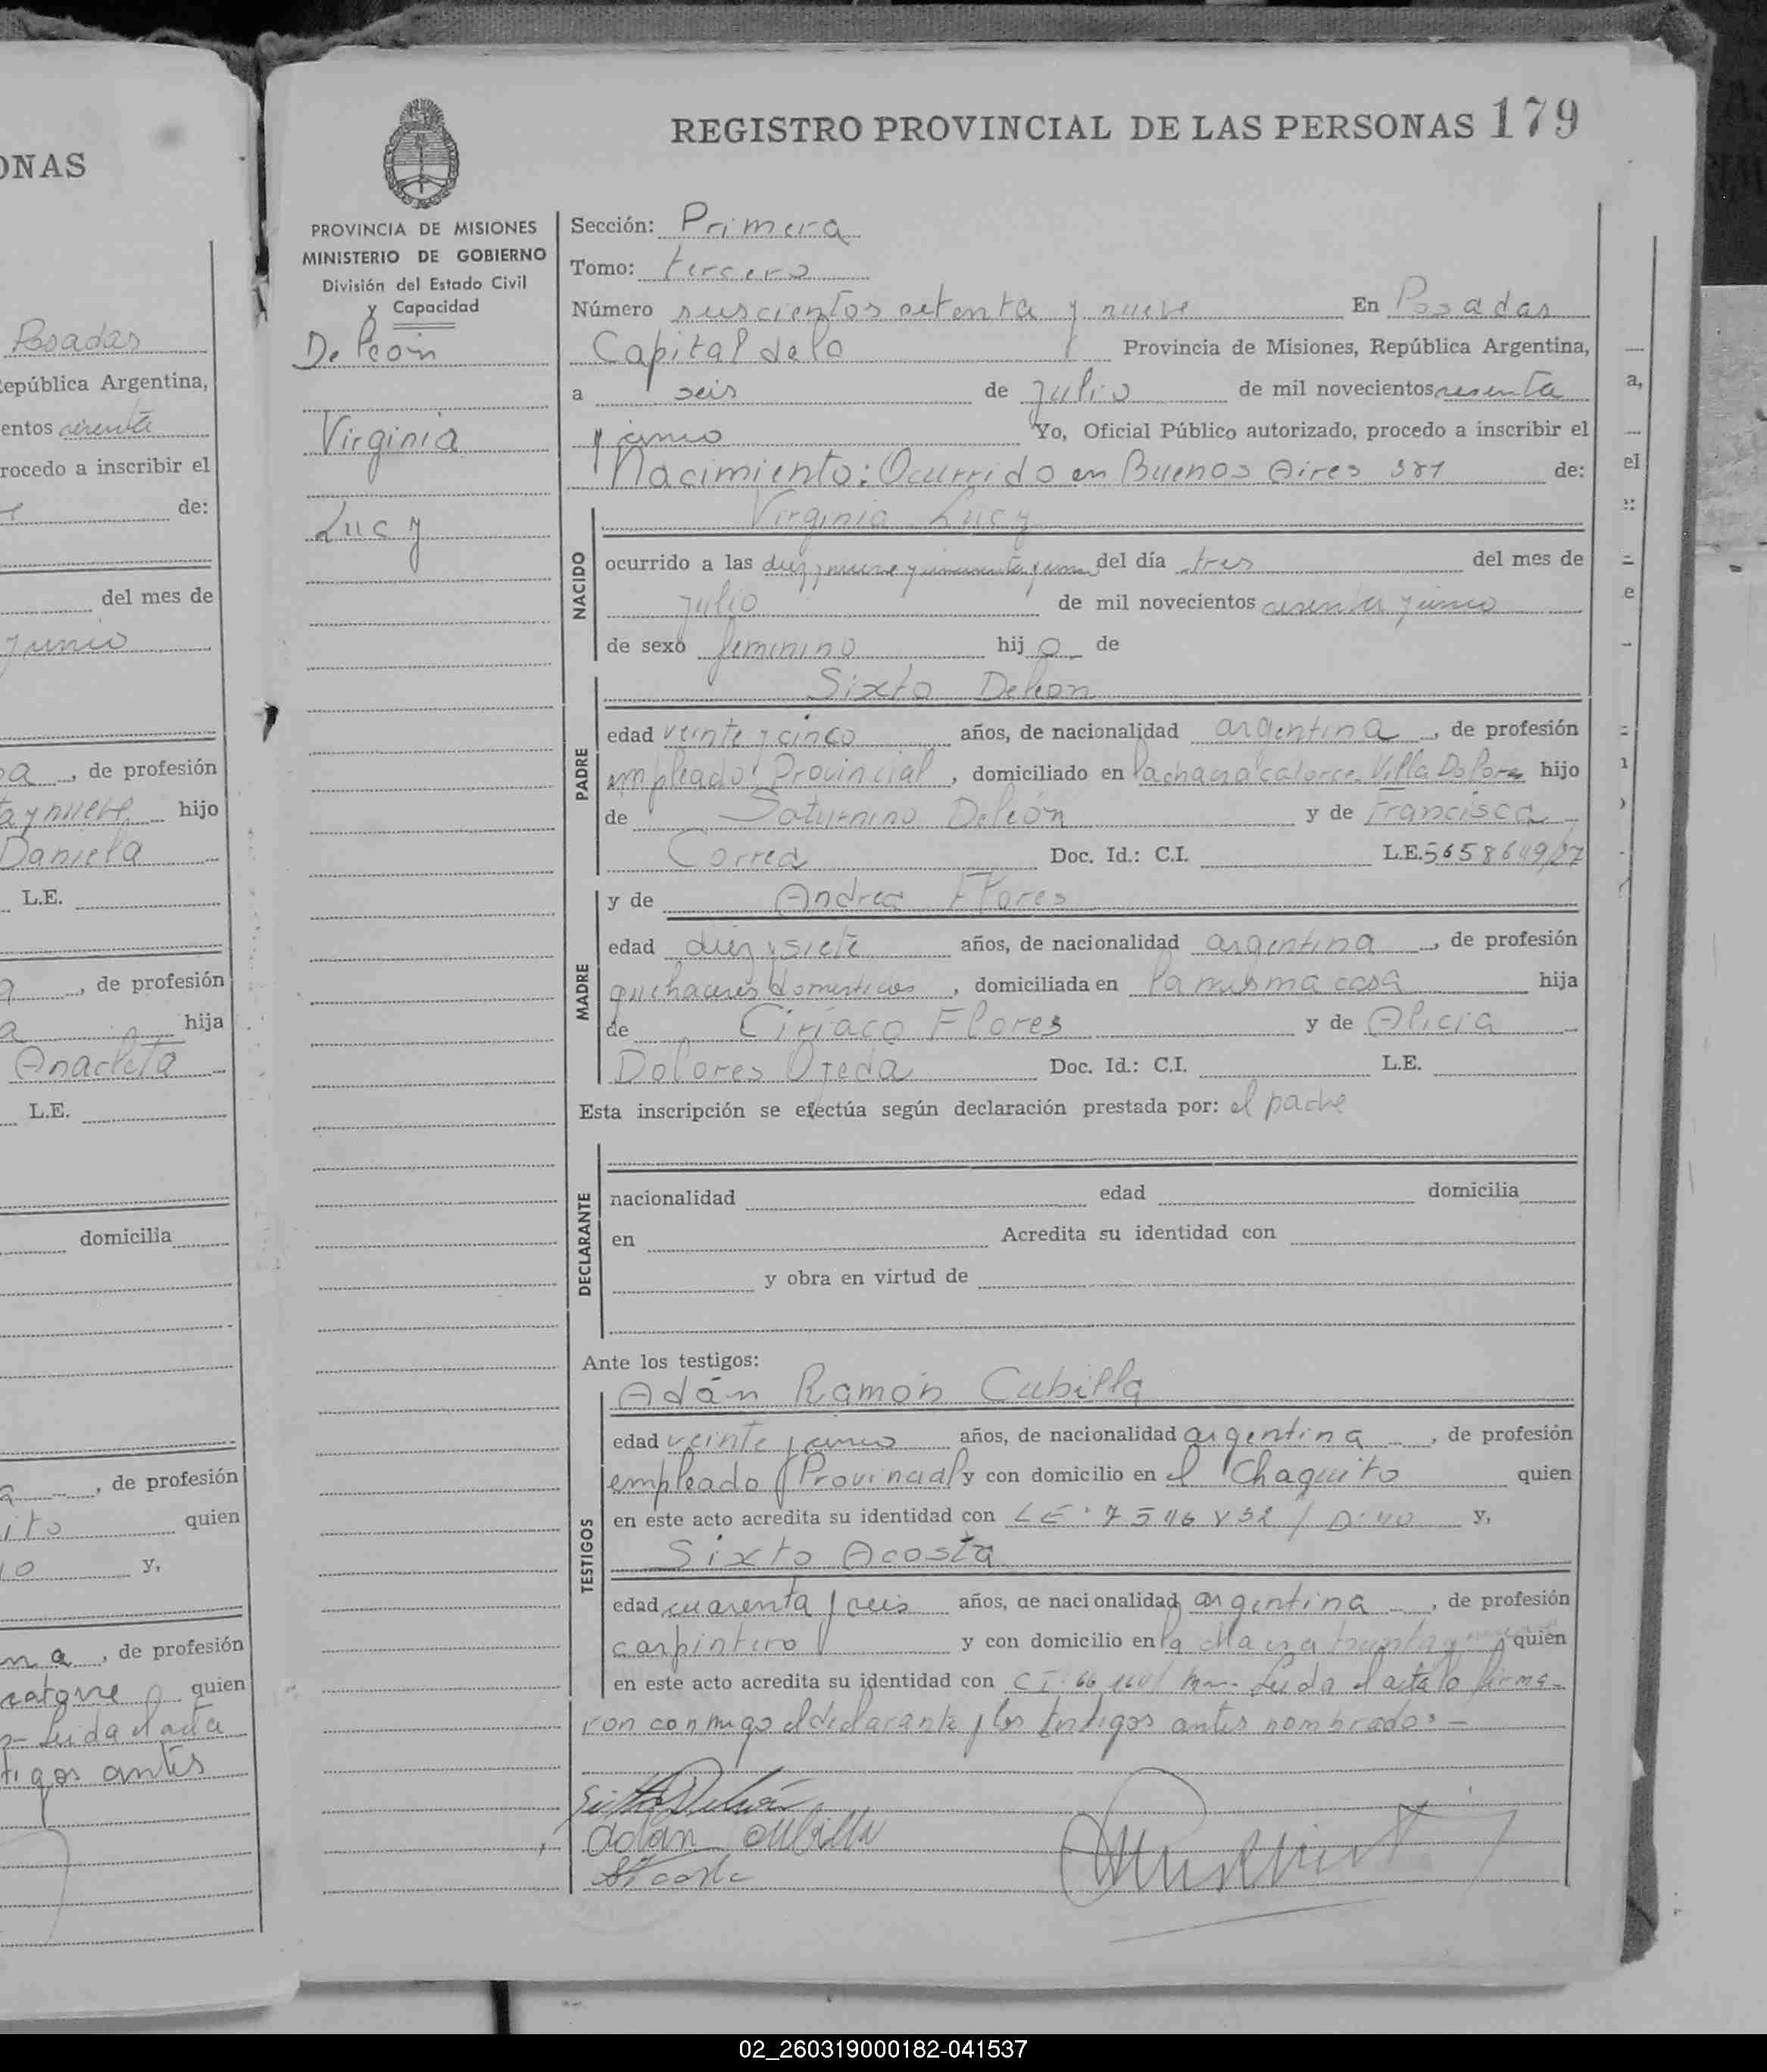 ONAS
Posadas
República Argentina,
entos
rocedo a inscribir el
de:
del mes de
de profesión
hijo
Daniela
L.E.
de profesión
hija
Anacleta
L.E.
domicilia
de profesión
quien
y,
de profesión
catorce quien
Leida el acta
tigos antes
REGISTRO PROVINCIAL DE LAS PERSONAS 179
PROVINCIA DE MISIONES
MINISTERIO DE GOBIERNO
División del Estado Civil
y Capacidad
De León
Virginia
Lucy
Sección: Primera
Tomo: tercero
Número setenta y nueve En Posadas
Capital de la Provincia de Misiones, República Argentina,
a seis de Julio de mil novecientos sesenta
y cinco Yo, Oficial Público autorizado, procedo a inscribir el
Nacimiento: Ocurrido en Buenos Aires de:
NACIDO
Virginia Lucy
ocurrido a las diez y nueve y del día tres del mes de
Julio de mil novecientos sesenta y cinco
de sexo femenino hij a de
PADRE
Sixto Deleon
edad veinte y cinco años, de nacionalidad argentina, de profesión
empleado Provincial, domiciliado en la chacra catorce Villa Dolores hijo
de Saturnino Deleón y de Francisca
Correa Doc. Id.: C.I. L.E. 5658649/27
MADRE
y de Andrea Flores
edad diez y siete años, de nacionalidad argentina, de profesión
quehaceres domesticos, domiciliada en la misma casa hija
de Ciríaco Flores y de Alicia
Dolores Ojeda Doc. Id.: C.I. L.E.
Esta inscripción se efectúa según declaración prestada por: el padre
DECLARANTE
nacionalidad edad domicilia
en Acredita su identidad con
y obra en virtud de
Ante los testigos:
TESTIGOS
Adán Ramón Cubilla
edad veinte y cinco años, de nacionalidad argentina, de profesión
empleado Provincial y con domicilio en el Chaquito quien
en este acto acredita su identidad con LE: y,
Sixto Acosta
edad cuarenta y seis años, de nacionalidad argentina, de profesión
carpintero y con domicilio en la chacra quien
en este acto acredita su identidad con CI Leida el acta lo firma-
ron conmigo el declarante y los testigos antes nombrados -
Sixto Deleón
Adan Cubilla
02_260319000182-041537